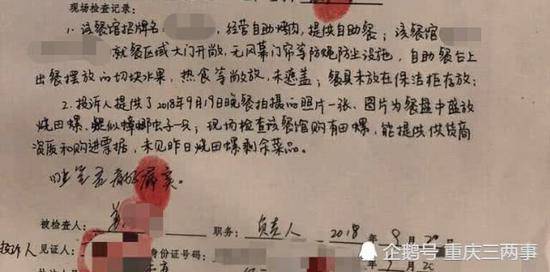 现场检查记录:
1. 该餐馆招牌名 ，经营自助烤肉，提供自助餐；该餐馆
就餐区域大门开敞，无风幕门帘等防蝇防尘设施，自助餐台上
出餐摆放的切块水果，热食等敞放，未遮盖；餐具未放在保洁柜存放；
2. 投诉人提供了2018年9月19日晚餐拍摄的照片一张、图片为餐盘中盛放
烧田螺，疑似蟑螂虫子一只；现场检查该餐馆购有田螺，能提供供货商
资质和购进票据，未见昨日烧田螺剩余菜品。
属实。
被检查人： 职务：负责人 2018年9月20
投诉人 见证人： 身份证号码： 年
企鹅号 重庆三两事